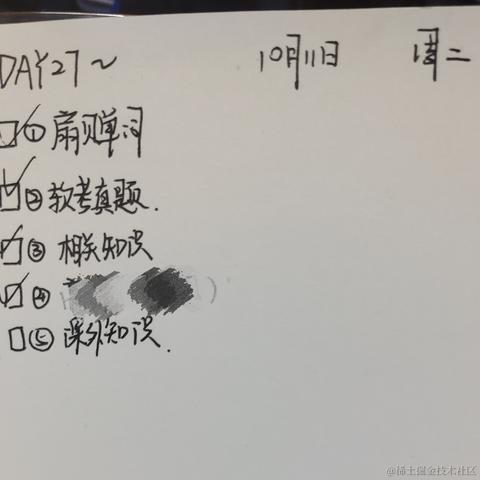 DAY27~ 10月11日 周二
① 扇贝单词
② 软考真题.
③ 相关知识
④ )
⑤ 课外知识.
@稀土掘金技术社区